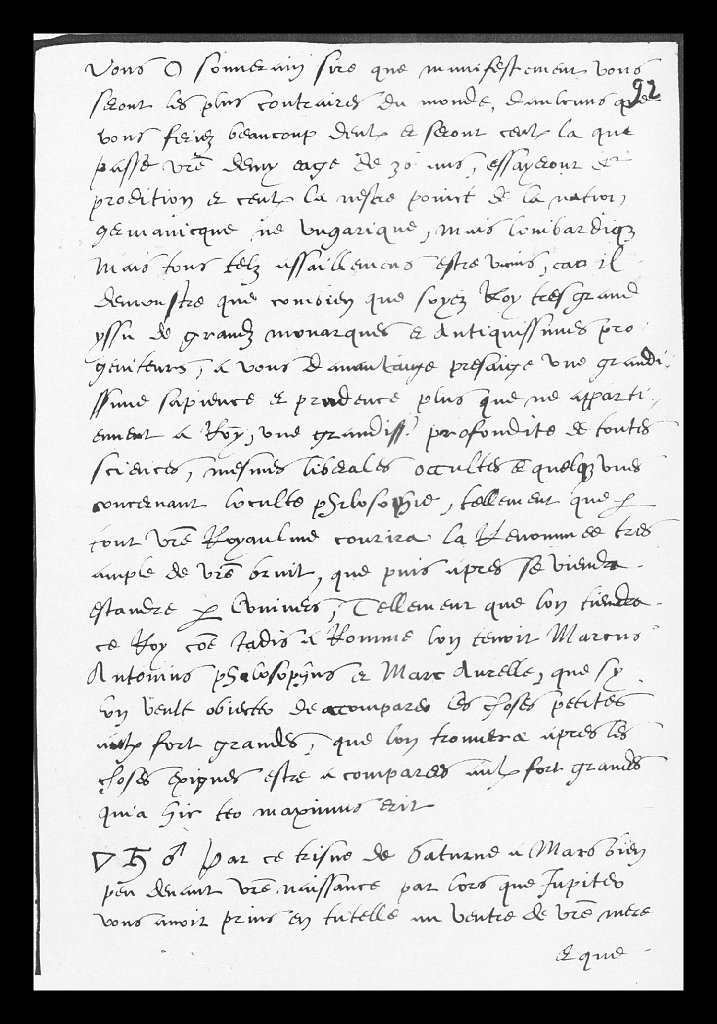 Vous O souverain sire que manifestement vous
92
seront les plus contraires du monde, daulcuns que
vous feriez beaucoup deulx et seront ceulx la que
passé vre demy eage de 30 ans, essayeront de
prodition et ceulx la n'estre poinct de la nation
germanicque ne Vngarique, mais lombardique
Mais tous telz assaillemens estre vains, car il
demonstre que combien que soyez Roy tresgrand
yssu de grandz monarques et Antiquissimes pro-
geniteurs, a vous davantaige presaige vne grandi-
ssime sapience et prudence plus que ne apparti-
ennent a Roy, vne grandiss. profondité de toutes
sciences, mesmes liberales occultes et quelques vnes
concernant loculte philosophie, tellement que p
tout vre Royaulme courira la Renommee tres
ample de vre bruit, que puis apres se viendra
estandre p Lunivers, Tellement que lon tiendra
ce Roy coe Iadis a Romme lon tenoit Marcus
Antonius philosophus et Marc Aurelle, que sy
lon veult obiecter de accomparer les choses petites
aulx fort grandes, que lon trouvera apres les
choses exigues estre a comparees aulx fort grandes
quia hic leo maximus erit
▽ ♄ ♂ Par ce trisne de Saturne a Mars bien
peu devant vre naissance par lors que Jupiter
vous avoit prins en tutelle au ventre de vre mere
et que